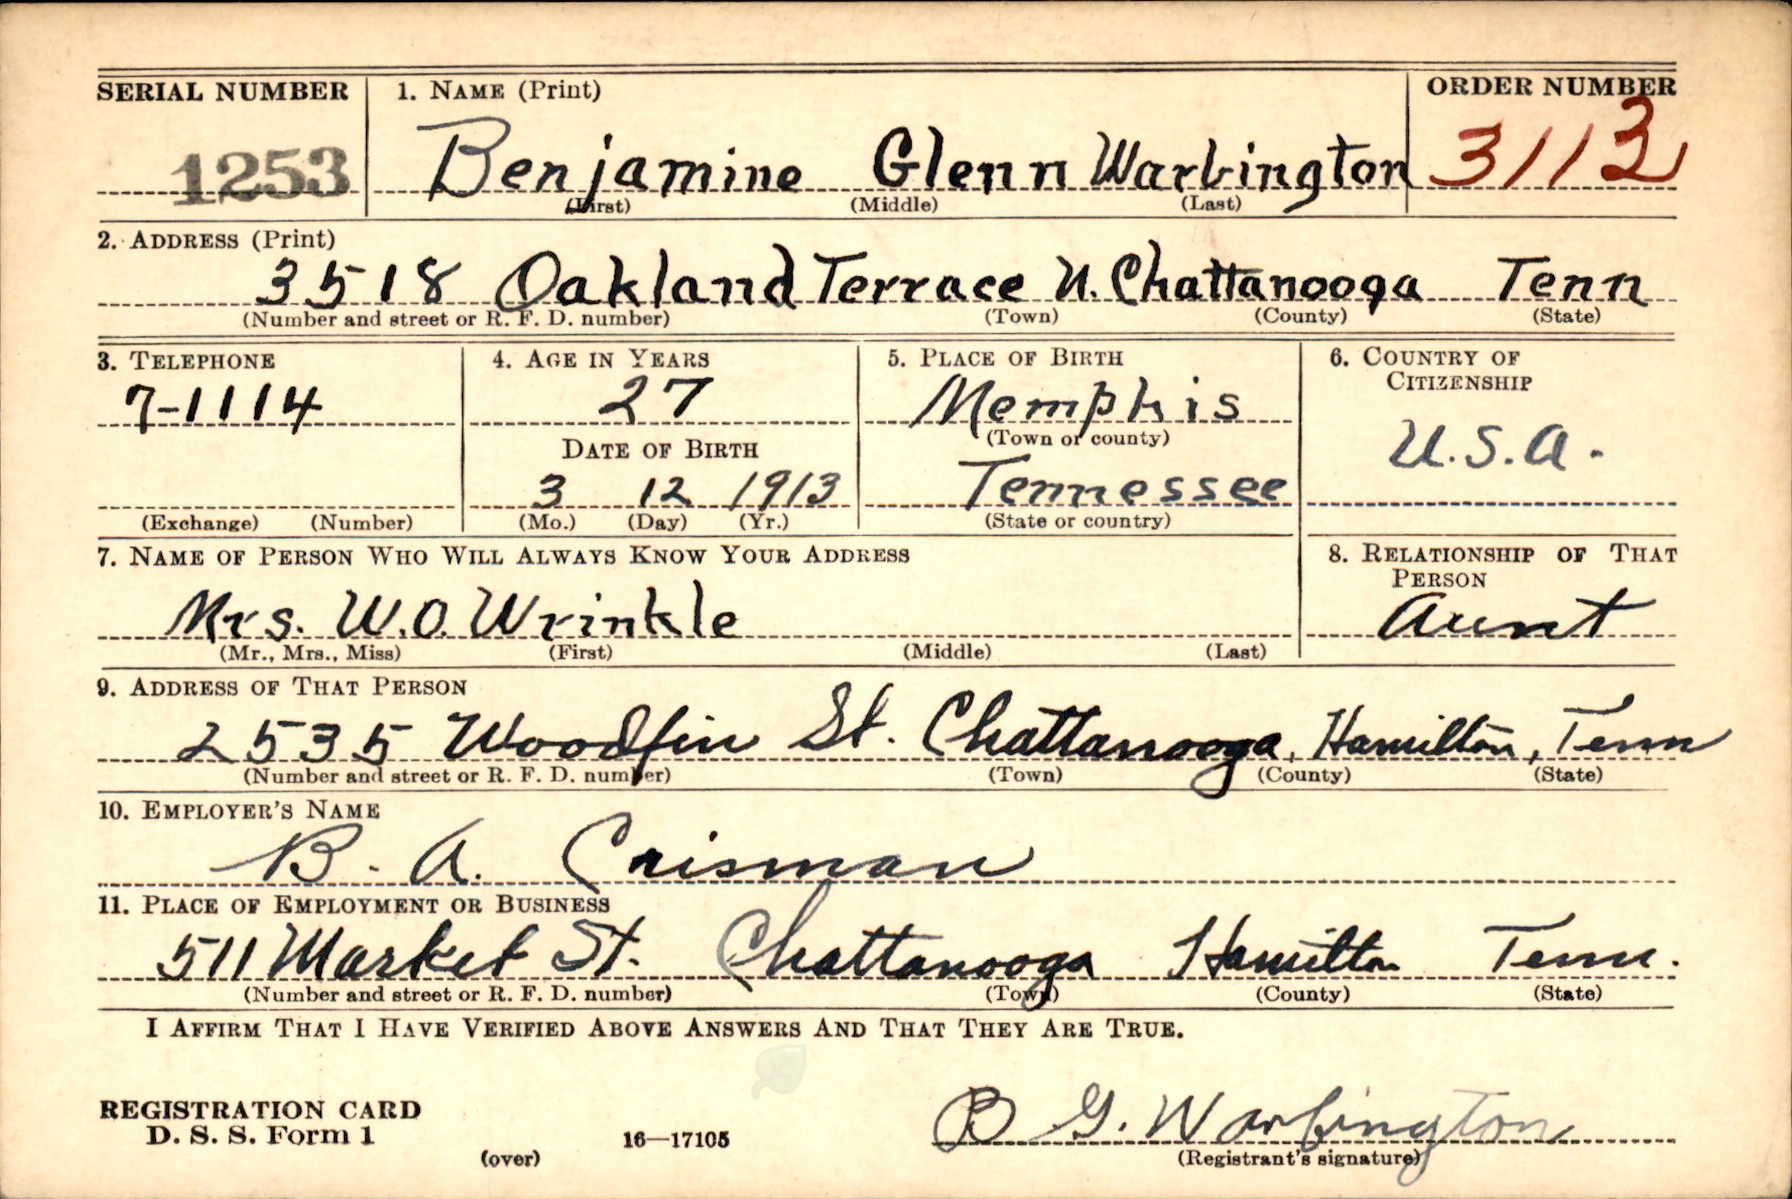 SERIAL NUMBER 1. NAME (Print) ORDER NUMBER
1253 Benjamine Glenn Warbington 3112
(First) (Middle) (Last)
2. ADDRESS (Print)
3518 Oakland Terrace N. Chattanooga Tenn
(Number and street or R. F. D. number) (Town) (County) (State)
3. TELEPHONE 4. AGE IN YEARS 5. PLACE OF BIRTH 6. COUNTRY OF
CITIZENSHIP
7-1114 27 Memphis
(Town or county)
DATE OF BIRTH U.S.A.
3 12 1913 Tennessee
(Exchange) (Number) (Mo.) (Day) (Yr.) (State or country)
7. NAME OF PERSON WHO WILL ALWAYS KNOW YOUR ADDRESS 8. RELATIONSHIP OF THAT
PERSON
Mrs. W.O. Wrinkle Aunt
(Mr., Mrs., Miss) (First) (Middle) (Last)
9. ADDRESS OF THAT PERSON
2535 Woodfin St. Chattanooga, Hamilton, Tenn
(Number and street or R. F. D. number) (Town) (County) (State)
10. EMPLOYER'S NAME
B. A. Crisman
11. PLACE OF EMPLOYMENT OR BUSINESS
511 Market St. Chattanooga Hamilton Tenn.
(Number and street or R. F. D. number) (Town) (County) (State)
I AFFIRM THAT I HAVE VERIFIED ABOVE ANSWERS AND THAT THEY ARE TRUE.
REGISTRATION CARD
D. S. S. Form 1 16—17105 B G. Warbington
(over) (Registrant's signature)